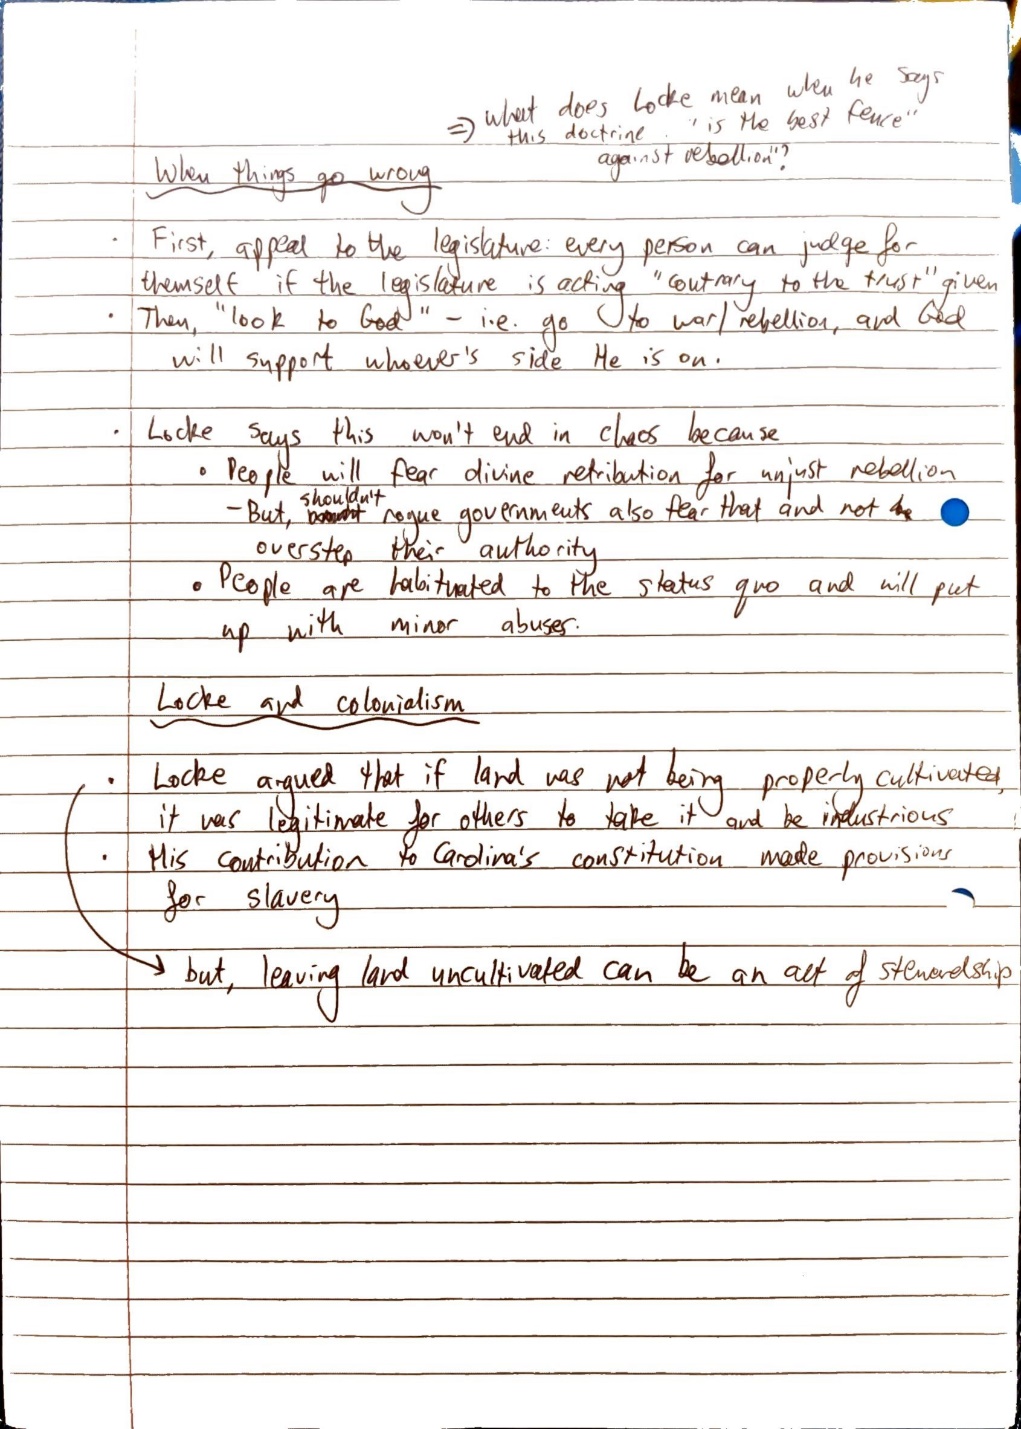 ⇒ what does Locke mean when he says
this doctrine "is the best fence"
against rebellion"?
When things go wrong
· First, appeal to the legislature: every person can judge for
themself if the legislature is acting "contrary to the trust" given
· Then, "look to God" - i.e. go to war/rebellion, and God
will support whoever's side He is on.
· Locke says this won't end in chaos because
• People will fear divine retribution for unjust rebellion
- But, shouldn't rogue governments also fear that and not
overstep their authority
• People are habituated to the status quo and will put
up with minor abuses.
Locke and colonialism
· Locke argued that if land was not being properly cultivated,
it was legitimate for others to take it and be industrious
· His contribution to Carolina's constitution made provisions
for slavery
→ but, leaving land uncultivated can be an act of stewardship